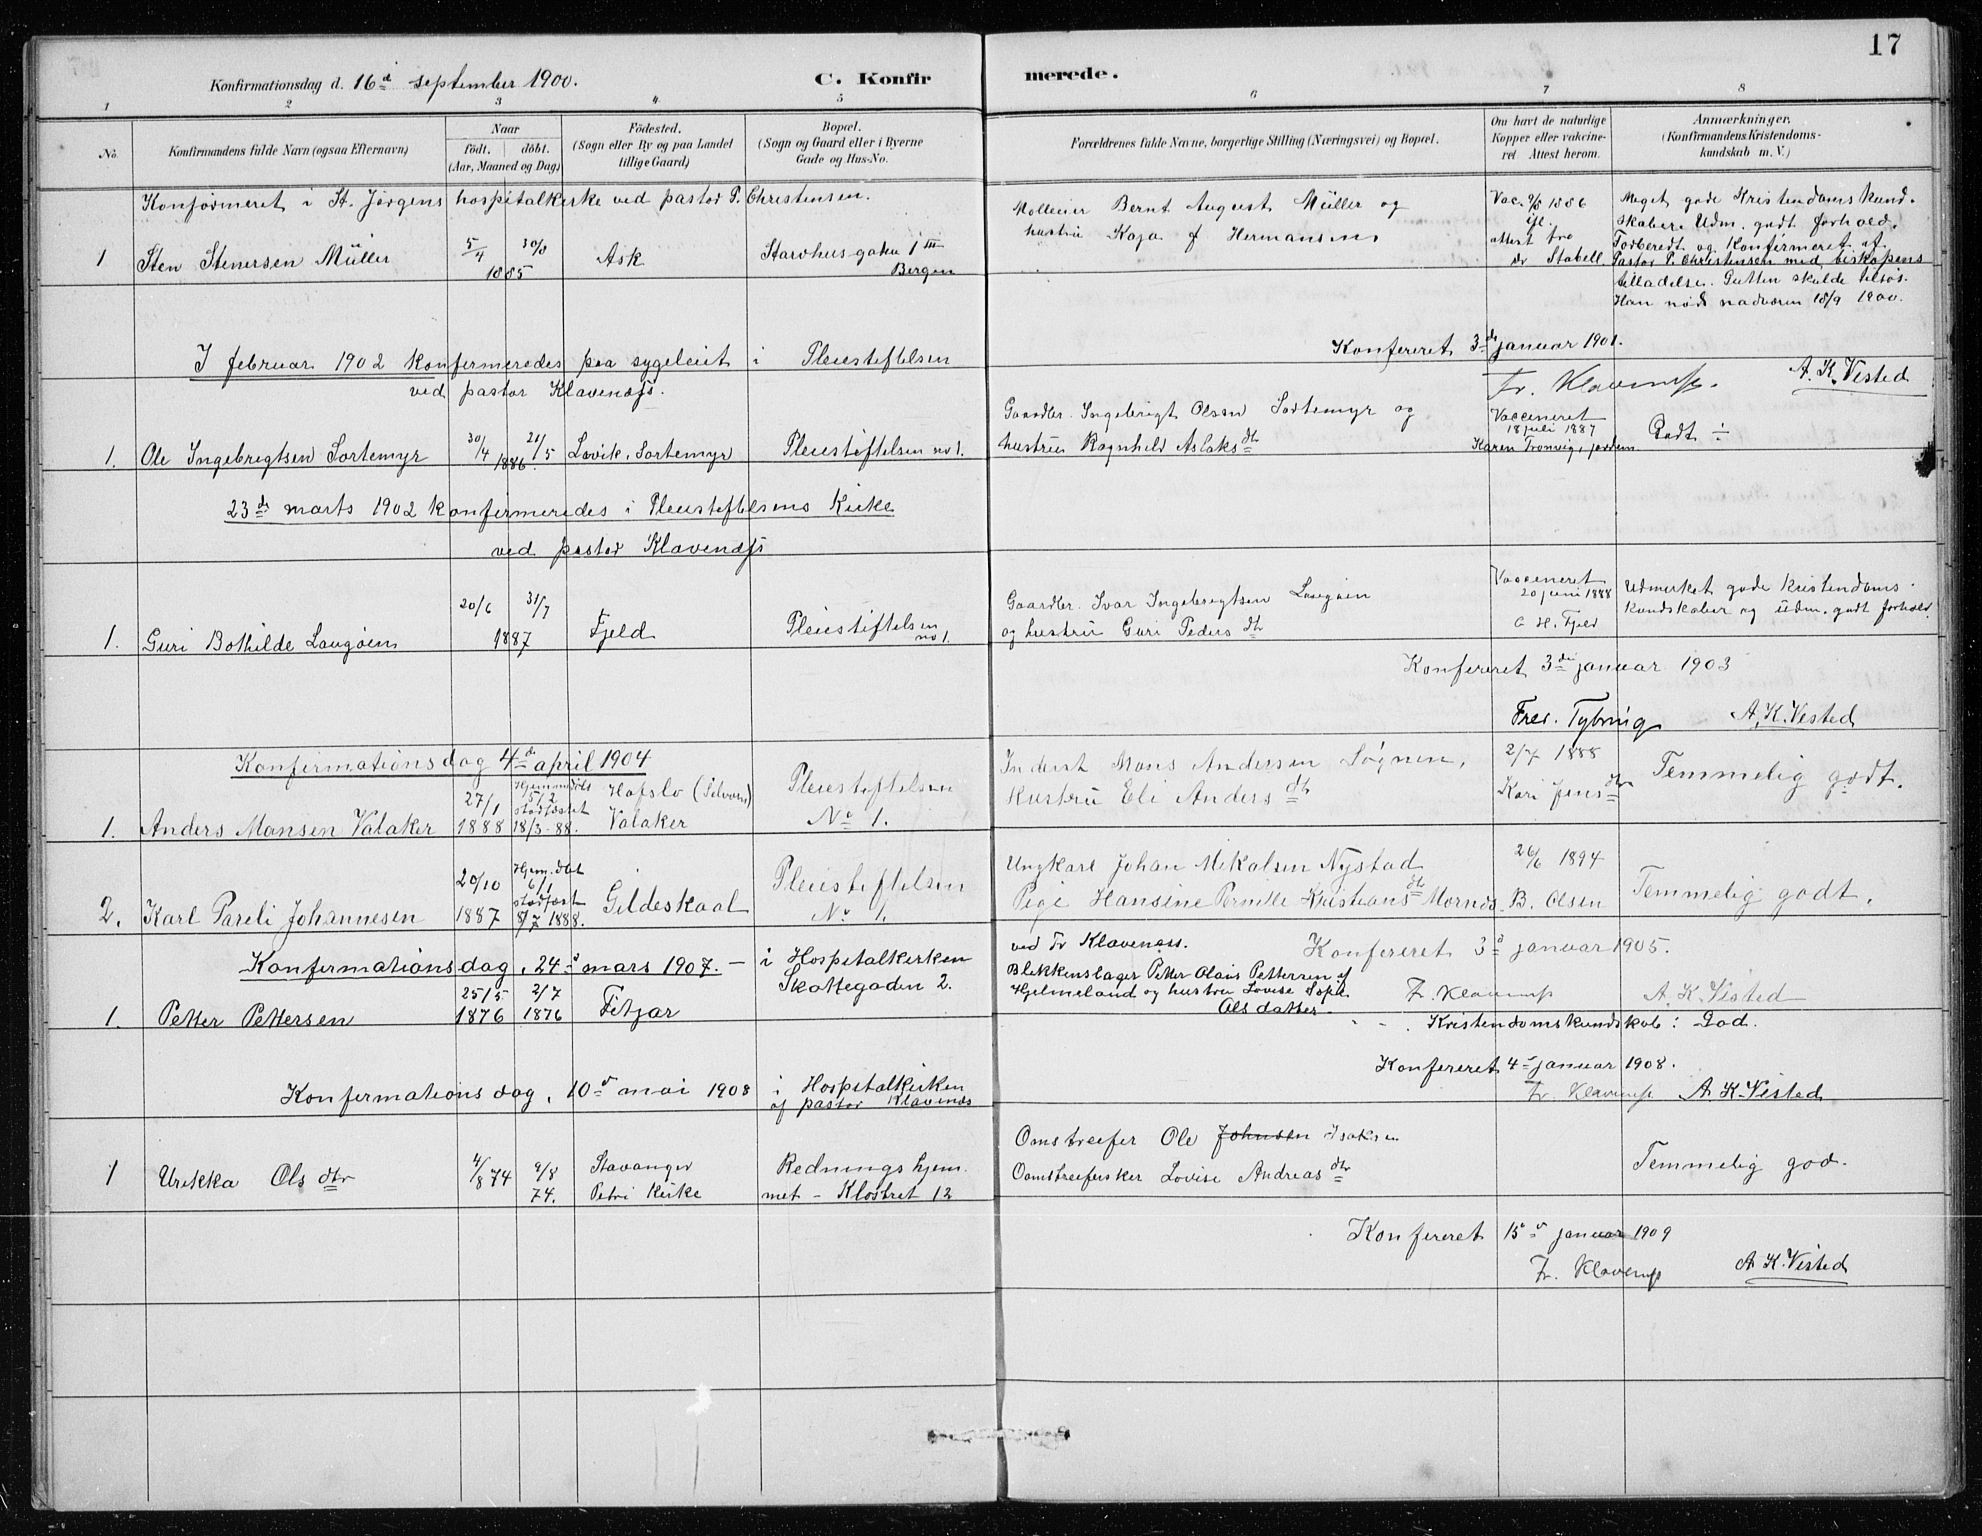 17
Konfirmationsdag d. 16d september 1900.
C. Konfirmerede.
1 2 3 4 5 6 7 8
No.
Konfirmandens fulde Navn (ogsaa Efternavn)
Naar
födt. döbt.
(Aar, Maaned og Dag)
Födested.
(Sogn eller By og paa Landet
tillige Gaard)
Bopæl.
(Sogn og Gaard eller i Byerne
Gade og Hus-No.
Forældrenes fulde Navne, borgerlige Stilling (Næringsvei) og Bopæl.
Om havt de naturlige
Kopper eller vakcine-
ret Attest herom.
Anmærkninger.
(Konfirmandens Kristendoms-
kundskab m. V.)
Konfirmeret i St. Jørgens hospitalkirke ved pastor P. Christensen.
1 Sten Stenersen Müller
5/4 30/8
1885
Ask
1 III
Bergen
Bernt August Müller og
hustru Kaja f Hermansen
Vac. 1886
attest fra
dr Stabell
Meget gode Kristendomskund-
skaber. Udm. godt forhold.
Forberedt og Konfirmeret af
Pastor P. Christensen med biskopens
tilladelse. Gutten skulde tilsøs.
Han nød nadveren 18/9 1900.
Konfereret 3di januar 1901.
Fr. Klaveness. A. K. Visted
I februar 1902 konfirmeredes paa sygeleiet i Pleiestiftelsen
ved pastor Klavenæss.
1. Ole Ingebregtsen Sortemyr
30/4 21/5
1886.
Lavik, Sortemyr
Pleiestiftelsen no 1.
Gaardbr. Ingebrigt Olsen Sortemyr og
hustru Ragnhild Aslaksdtr
Vaccineret
18 juli 1887
Karen Tronvig, jordem.
Godt ÷
23de marts 1902 konfirmeredes i Pleiestiftelsens Kirke
ved pastor Klavenæss
1. Guri Bothilde Langøen
20/6 31/7
1887
Fjeld
Pleiestiftelsen
no 1.
Gaardbr. Ivar Ingebregtsen Langøen
og hustru Guri Pedersdtr
Vaccineret
20 juni 1888
H. Fjeld
Udmerket gode kristendoms-
kundskaber og udm. godt forhold.
Konfereret 3die januar 1903
Fred. Tybring A. K. Vested
Konfirmationsdag 4de april 1904
1. Anders Monsen Valaker
27/1
1888
Hjemmdøbt
5/2
stadfæstet
18/3-88.
Hafslo (Solvorn)
Valaker
Pleiestiftelsen
No 1.
Inderst Mons Andersen Sognen,
Hustru Eli Andersdtr
2/7 1888
Kari Jensdtr
Temmelig godt.
2. Karl Pareli Johannesen
20/10
1887
Hjem. dbt
6/1
stadfæst
8/7 1888.
Gildeskaal
Pleiestiftelsen
No 1.
Ungkarl Johan Mikalsen Nystad
Pige Hansine Pernille Kristiansdtr Mornes
26/6 1894
B. Olsen
Temmelig godt.
Konfereret 3d januar 1905.
Fr. Klaveness A. K. Visted
Konfirmationsdag, 24d mars 1907. — i Hospitalkirken
ved Fr Klaveness.
1. Petter Pettersen
25/5 2/7
1876 1876
Fitjar
Skottegaden 2.
Blikkenslager Petter Olaus Pettersen af
Hjelmeland og hustru Lovise
Olsdatter
Kristendomskundskab: God.
Konfereret 4d januar 1908.
Fr. Klaveness A. K. Visted
Konfirmationsdag, 10d mai 1908 i Hospitalkirken
af pastor Klavenæs
1 Urikka Olsdtr
4/8 74 9/8
74.
Stavanger
Petri Kirke
Rednings hjem-
met - Klostret 12
Omstreifer Ole Johnsen Isaksen
Omstreiferske Lovise Andreasdtr
Temmelig god.
Konfereret 15d januar 1909
Fr. Klaveness A. K. Visted